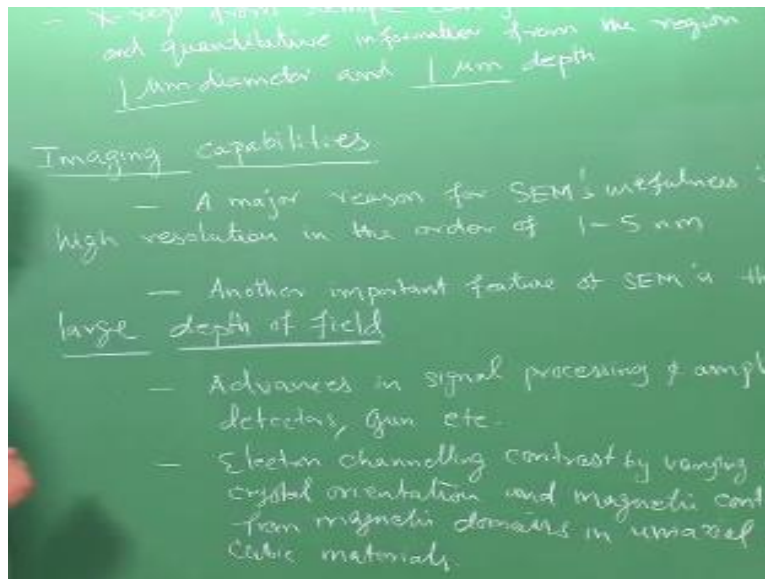 - X-rays from sample
and quantitative information from the region
1 μm diameter and 1 μm depth
Imaging capabilities
— A major reason for SEM's usefulness is
high resolution in the order of 1-5 nm
— Another important feature of SEM is the
large depth of field
— Advances in signal processing & ampl
detectors, gun etc.
— Electron channelling contrast by varying
crystal orientation and magnetic cont
from magnetic domains in uniaxial
cubic materials.